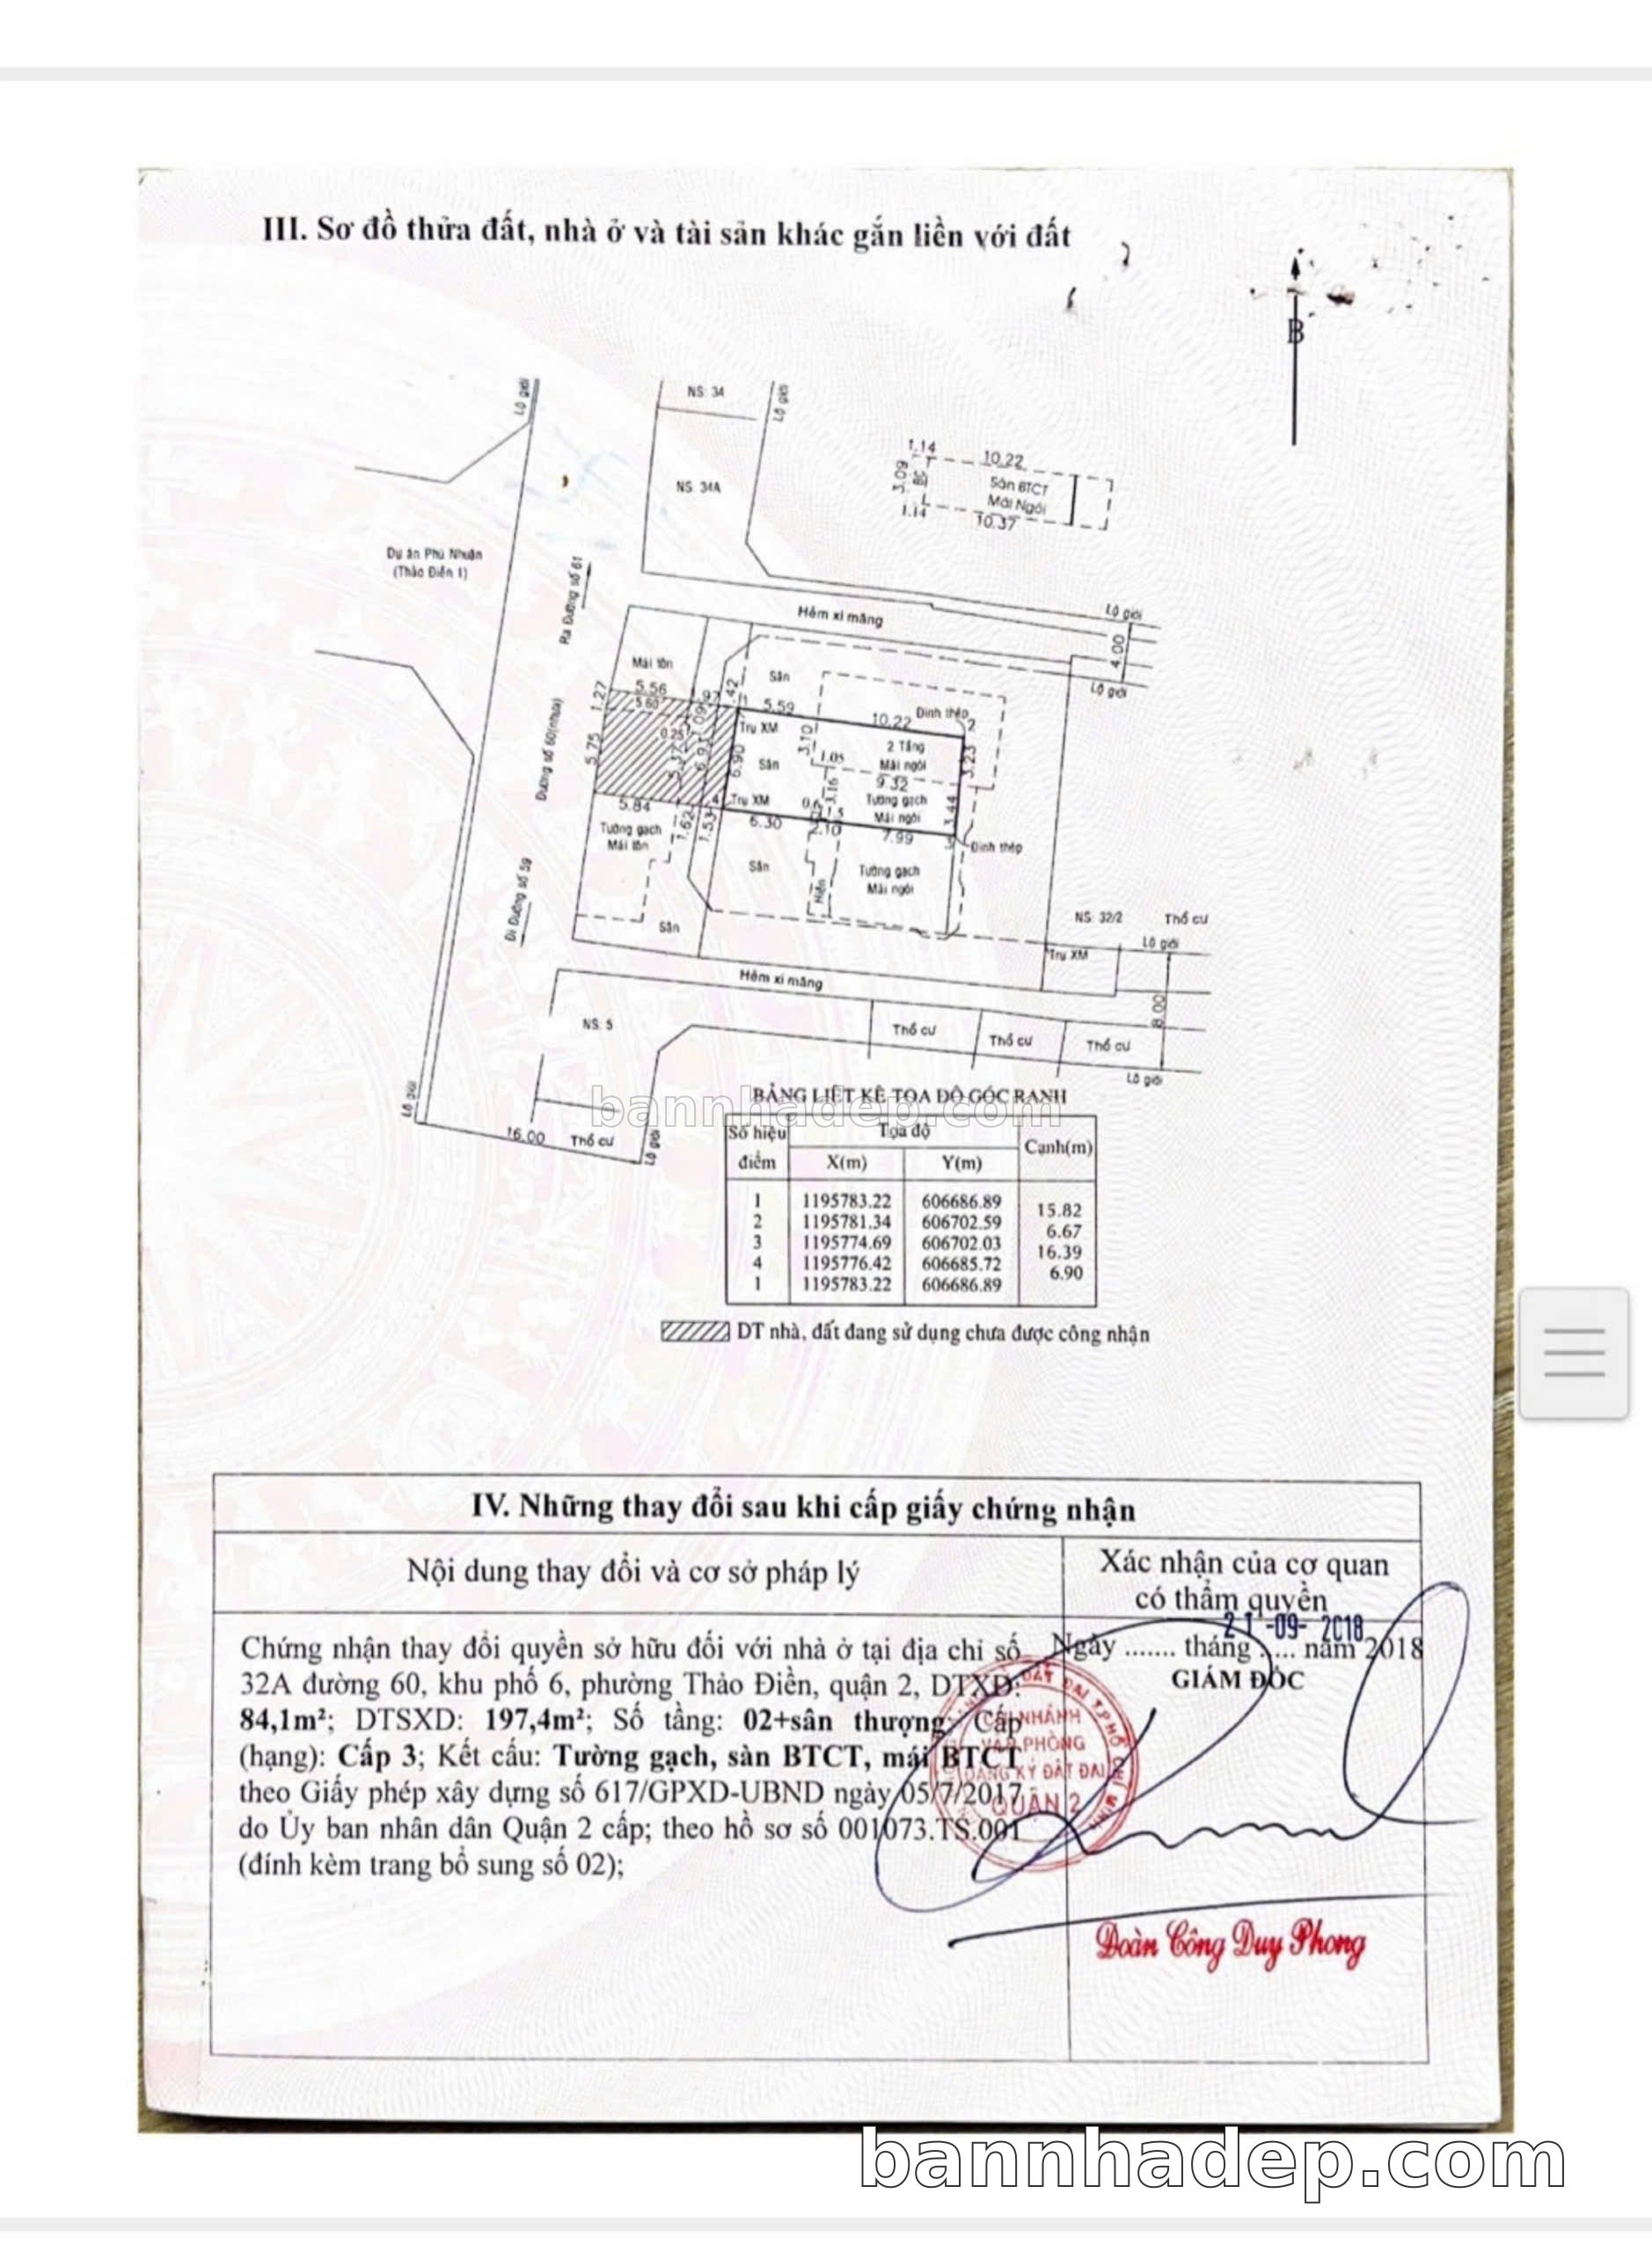 III. Sơ đồ thửa đất, nhà ở và tài sản khác gắn liền với đất
B
Lộ giới
NS: 34
Lộ giới
NS: 34A
1.14
10.22
3.09
BC
Sàn BTCT
Mái Ngói
1.14
10.37
Dự án Phú Nhuận
(Thảo Điền 1)
Ra Đường số 61
Hẻm xi măng
Lộ giới
4.00
Lộ giới
Mái tôn
Sân
1.27
5.56
5.60
5.59
10.22
Đinh thép
1
2
Trụ XM
0.25
3.10
2 Tầng
Mái ngói
3.23
Đường số 60(nhựa)
5.75
6.90
Sân
1.05
9.32
3.16
Tường gạch
Mái ngói
3.44
4
Trụ XM
5.84
6.30
2.10
7.99
3
Đinh thép
1.62
1.53
Tường gạch
Mái tôn
Sân
Hiên
Tường gạch
Mái ngói
Đi Đường số 59
Sân
NS: 32/2
Thổ cư
Lộ giới
Trụ XM
Hẻm xi măng
8.00
NS: 5
Thổ cư
Thổ cư
Thổ cư
Lộ giới
Lộ giới
16.00
Thổ cư
Lộ giới
bannhadep.com
BẢNG LIỆT KÊ TỌA ĐỘ GÓC RANH
Số hiệu điểm
Tọa độ
Cạnh(m)
X(m)
Y(m)
1 1195783.22 606686.89
15.82
2 1195781.34 606702.59
6.67
3 1195774.69 606702.03
16.39
4 1195776.42 606685.72
6.90
1 1195783.22 606686.89
DT nhà, đất đang sử dụng chưa được công nhận
IV. Những thay đổi sau khi cấp giấy chứng nhận
Nội dung thay đổi và cơ sở pháp lý
Xác nhận của cơ quan
có thẩm quyền
Chứng nhận thay đổi quyền sở hữu đối với nhà ở tại địa chỉ số
32A đường 60, khu phố 6, phường Thảo Điền, quận 2, DTXD:
84,1m²; DTSXD: 197,4m²; Số tầng: 02+sân thượng; Cấp
(hạng): Cấp 3; Kết cấu: Tường gạch, sàn BTCT, mái BTCT
theo Giấy phép xây dựng số 617/GPXD-UBND ngày 05/7/2017
do Ủy ban nhân dân Quận 2 cấp; theo hồ sơ số 001073.TS.001
(đính kèm trang bổ sung số 02);
21 -09- 2018
Ngày ....... tháng ..... năm 2018
GIÁM ĐỐC
CHI NHÁNH
VĂN PHÒNG
ĐĂNG KÝ ĐẤT ĐAI
QUẬN 2
Đoàn Công Duy Phong
bannhadep.com